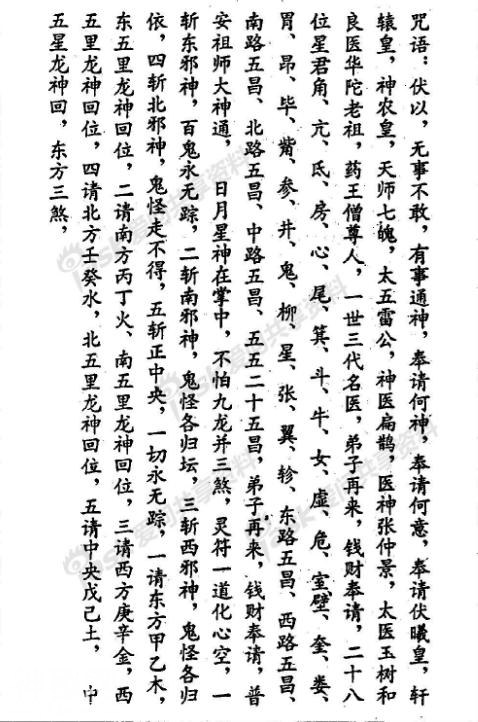 咒语：伏以，无事不敢，有事通神，奉请何神，奉请何意，奉请伏曦皇，轩
辕皇，神农皇，天师七魄，太五雷公，神医扁鹊，医神张仲景，太医玉树和
良医华陀老祖，药王僧尊人，一世三代名医，弟子再来，钱财奉请，二十八
位星君角、亢、氐、房、心、尾、箕、斗、牛、女、虚、危、室、壁、奎、娄、
胃、昂、毕、觜、参、井、鬼、柳、星、张、翼、轸、东路五昌、西路五昌、
南路五昌、北路五昌、中路五昌、五五二十五昌，弟子再来，钱财奉请，普
安祖师大神通，日月星神在掌中，不怕九龙并三煞，灵符一道化心空，一
斩东邪神，百鬼永无踪，二斩南邪神，鬼怪各归坛，三斩西邪神，鬼怪各归
依，四斩北邪神，鬼怪走不得，五斩正中央，一切永无踪，一请东方甲乙木，
东五里龙神回位，二请南方丙丁火、南五里龙神回位，三请西方庚辛金，西
五里龙神回位，四请北方壬癸水，北五里龙神回位，五请中央戊己土，中
五星龙神回，东方三煞，